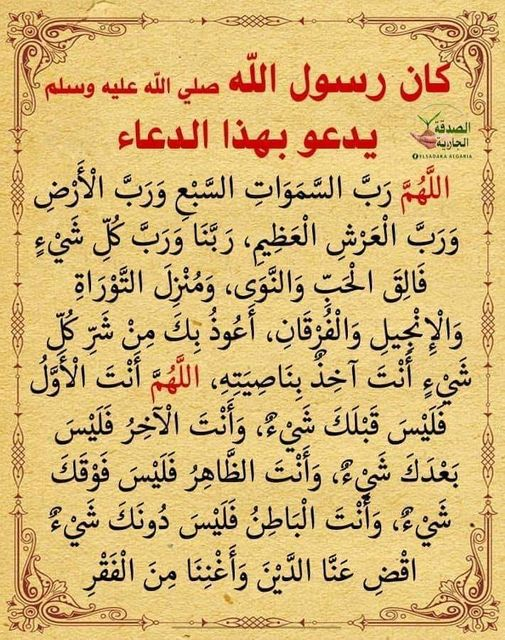 كان رسول الله صلي الله عليه وسلم
يدعو بهذا الدعاء
الصدقة
الجارية
ELSADAKA ALGARIA
اللَّهُمَّ رَبَّ السَّمَوَاتِ السَّبْعِ وَرَبَّ الْأَرْضِ
وَرَبَّ الْعَرْشِ الْعَظِيمِ، رَبَّنَا وَرَبَّ كُلِّ شَيْءٍ
فَالِقَ الْحَبِّ وَالنَّوَى، وَمُنْزِلَ التَّوْرَاةِ
وَالْإِنْجِيلِ وَالْفُرْقَانِ، أَعُوذُ بِكَ مِنْ شَرِّ كُلِّ
شَيْءٍ أَنْتَ آخِذٌ بِنَاصِيَتِهِ، اللَّهُمَّ أَنْتَ الْأَوَّلُ
فَلَيْسَ قَبْلَكَ شَيْءٌ، وَأَنْتَ الْآخِرُ فَلَيْسَ
بَعْدَكَ شَيْءٌ، وَأَنْتَ الظَّاهِرُ فَلَيْسَ فَوْقَكَ
شَيْءٌ، وَأَنْتَ الْبَاطِنُ فَلَيْسَ دُونَكَ شَيْءٌ
اقْضِ عَنَّا الدَّيْنَ وَأَغْنِنَا مِنَ الْفَقْرِ